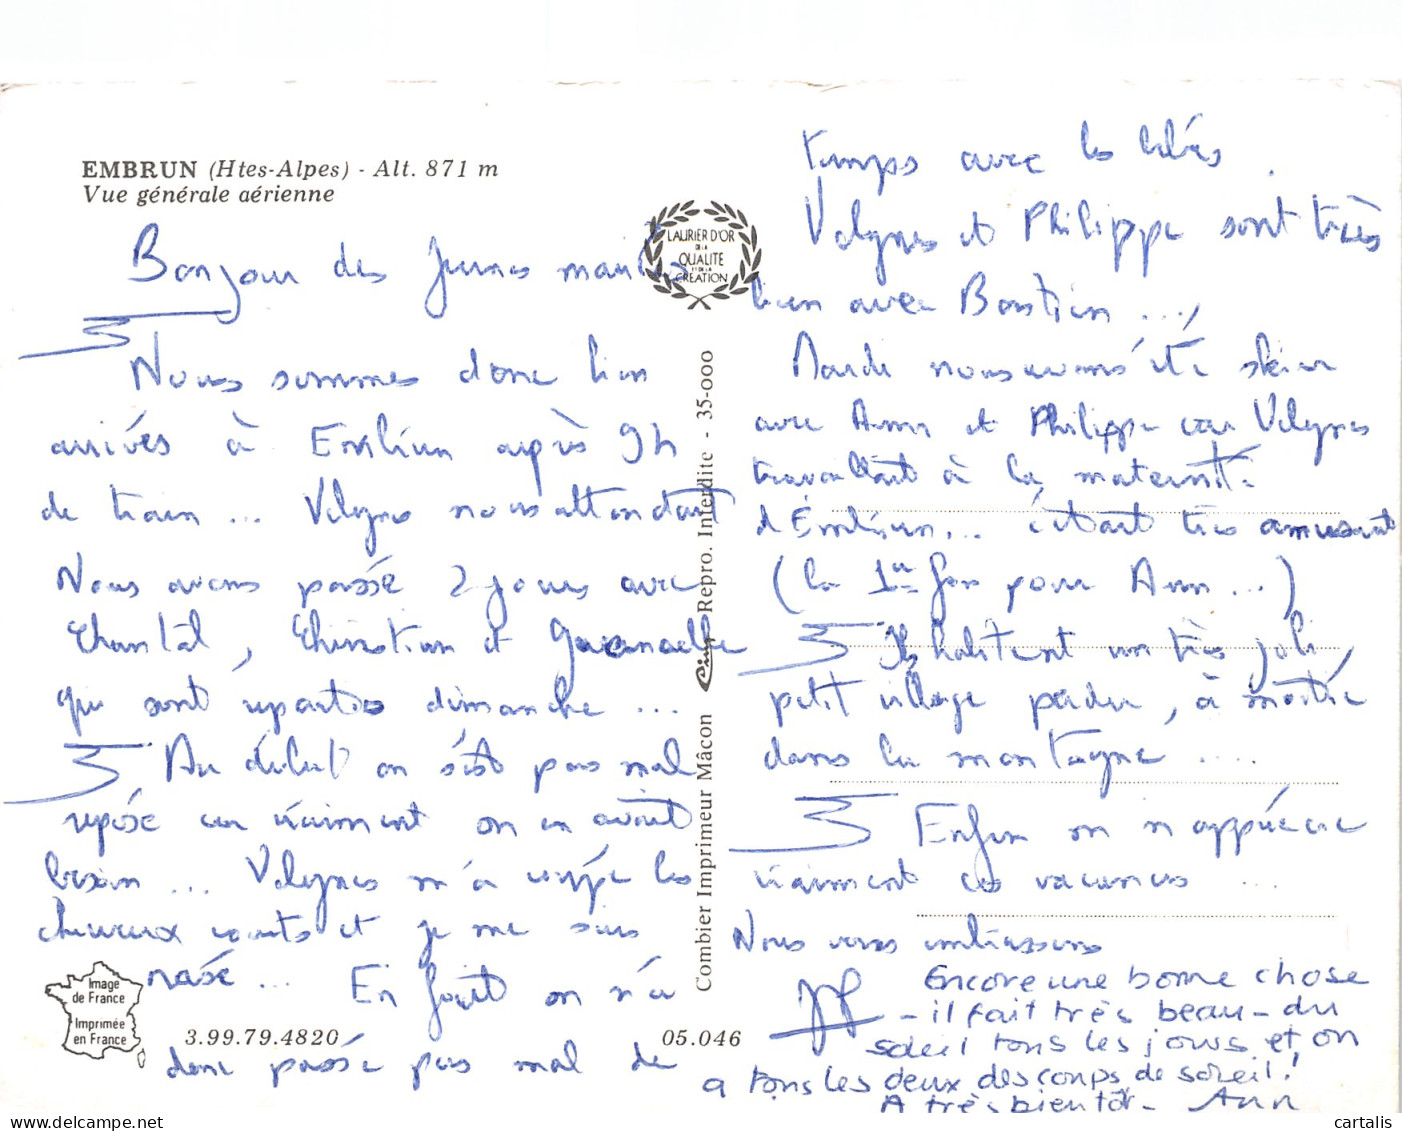 EMBRUN (Htes-Alpes) - Alt. 871 m
Vue générale aérienne
Bonjour des jeunes mariés
Nous sommes donc bien
arrivés à Embrun après 9h
de train ... nous attendait
Nous avons passé 2 jours avec
Chantal, Christian et Gwenaelle
qui sont repartis dimanche ...
Au début on s'est pas mal
reposé car vraiment on en avait
besoin ... m'a coupé les
cheveux courts et je me suis
rasé ... En fait on n'a
donc passé pas mal de
LAURIER D'OR
DE LA
QUALITE
ET DE LA
CREATION
Combier Imprimeur Mâcon Cim Repro. Interdite - 35-000
Image
de France
Imprimée
en France
3.99.79.4820
05.046
temps avec les bébés.
et Philippe sont très
bien avec Bastien ...,
Mardi nous avons été skier
avec Ann et Philippe car
travaillait à la maternité
d'Embrun... c'était très amusant
(la 1ère fois pour Ann ...)
Ils habitent un très joli
petit village perdu, à moitié
dans la montagne ....
Enfin on n'apprécie
vraiment ces vacances ...
Nous vous embrassons
Encore une bonne chose
- il fait très beau - du
soleil tous les jours et on
a tous les deux des coups de soleil!
A très bientôt - Ann
cartalis
delcampe.net